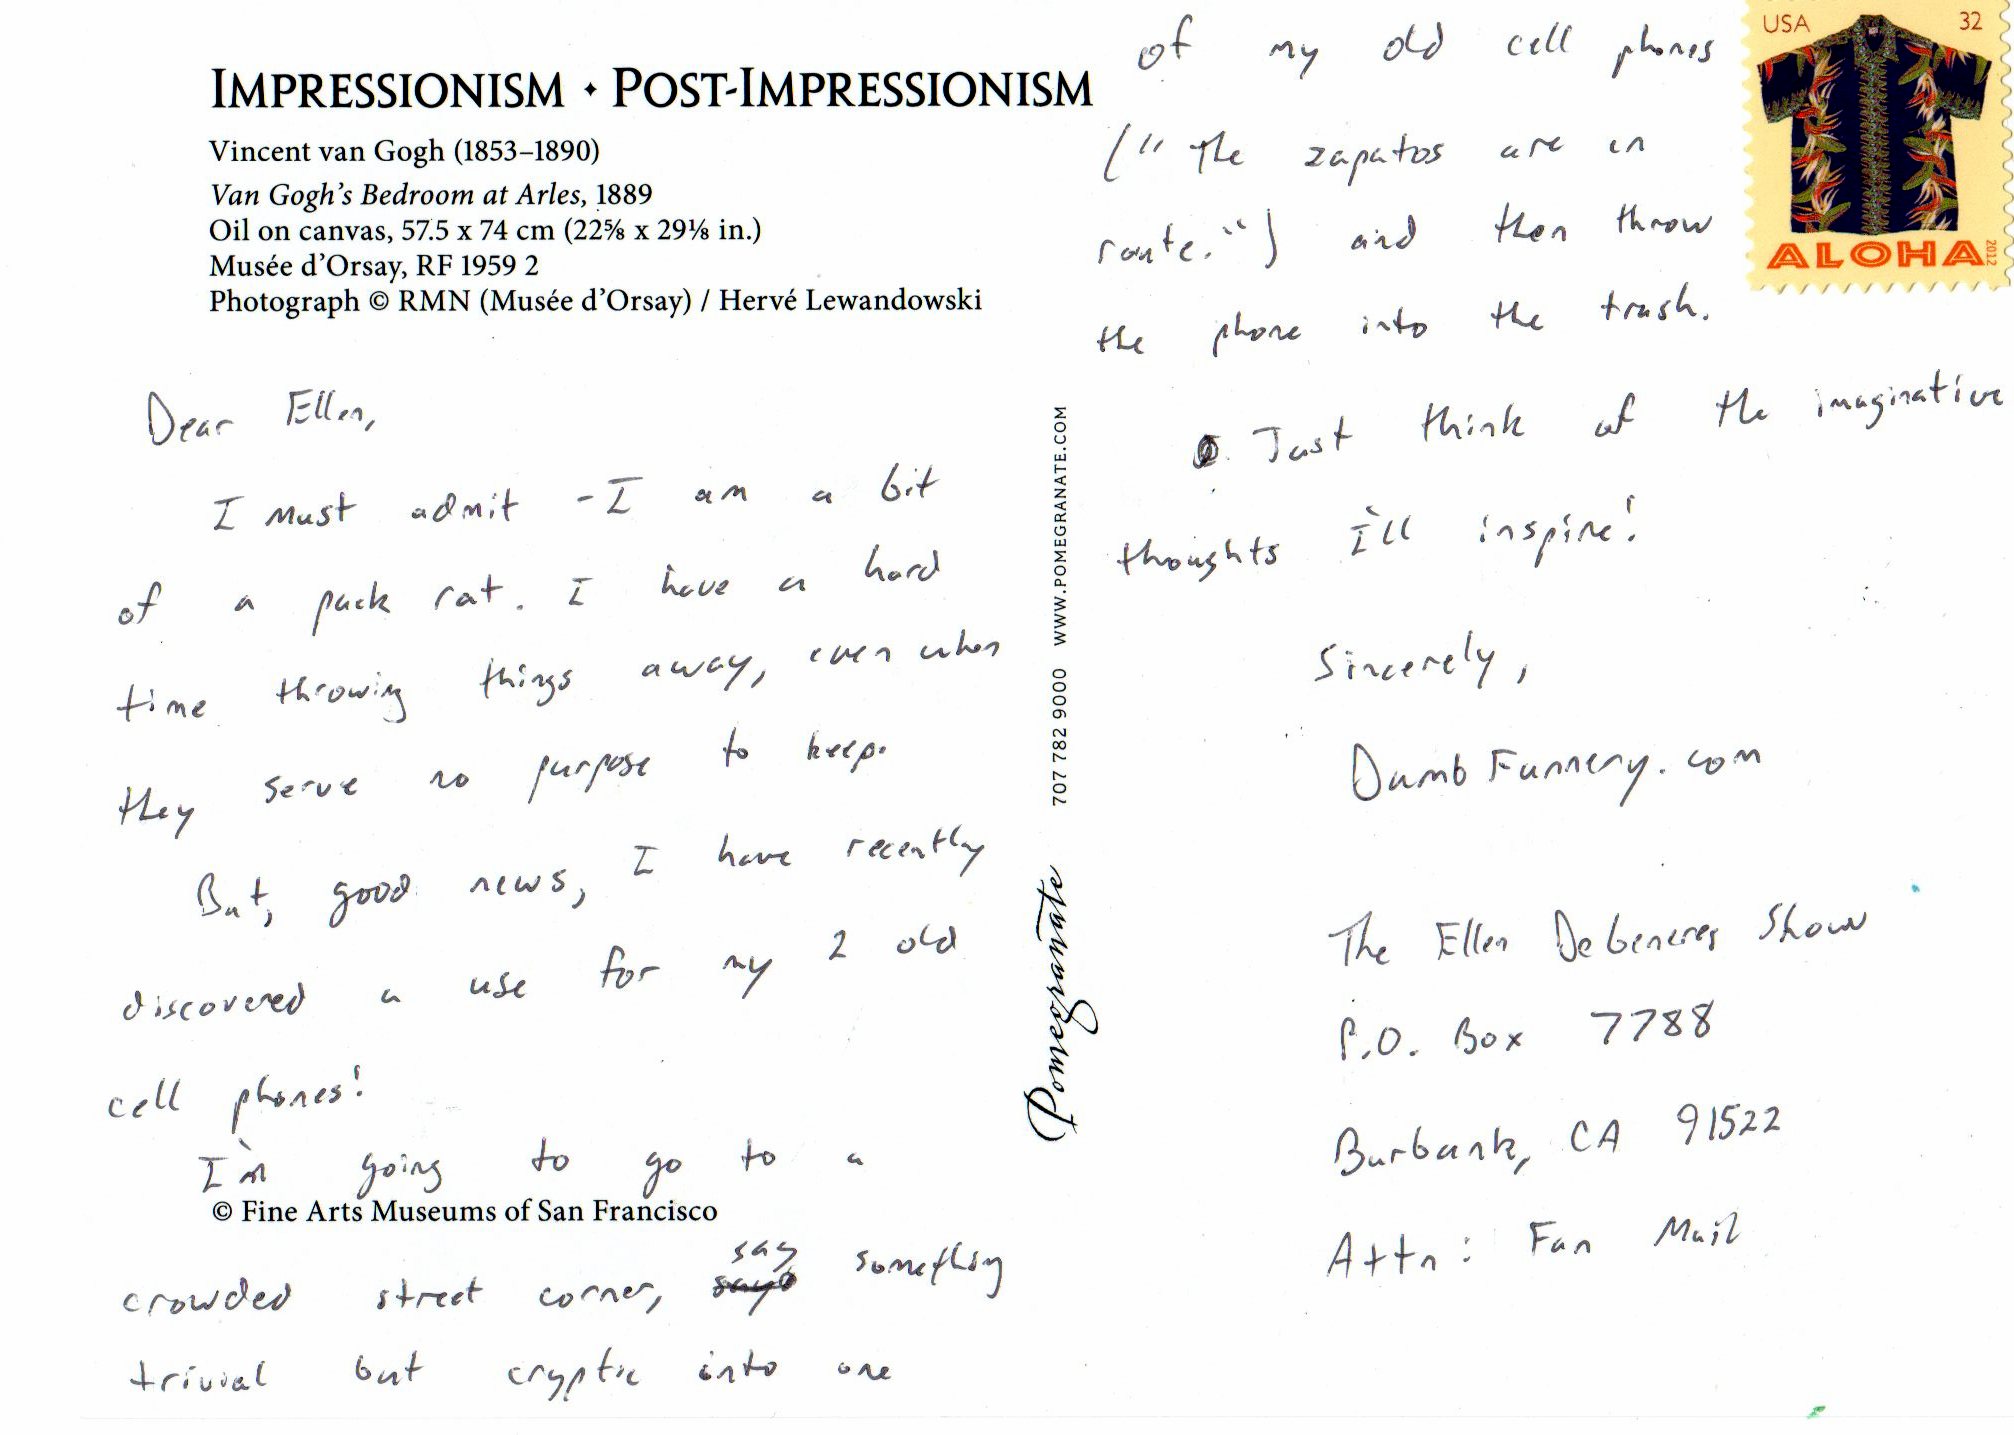 IMPRESSIONISM • POST-IMPRESSIONISM
Vincent van Gogh (1853–1890)
Van Gogh's Bedroom at Arles, 1889
Oil on canvas, 57.5 x 74 cm (22⅝ x 29⅛ in.)
Musée d'Orsay, RF 1959 2
Photograph © RMN (Musée d'Orsay) / Hervé Lewandowski
Dear Ellen,
I must admit - I am a bit
of a pack rat. I have a hard
time throwing things away, even when
they serve no purpose to keep.
But, good news, I have recently
discovered a use for my 2 old
cell phones!
I'm going to go to a
© Fine Arts Museums of San Francisco
crowded street corner, say something
trivial but cryptic into one
707 782 9000 WWW.POMEGRANATE.COM
Pomegranate
of my old cell phones
("The zapatos are in
route.") and then throw
the phone into the trash.
Just think of the imaginative
thoughts I'll inspire!
Sincerely,
DumbFunnery.com
The Ellen DeGeneres Show
P.O. Box 7788
Burbank, CA 91522
Attn: Fan Mail
USA 32
ALOHA
2012